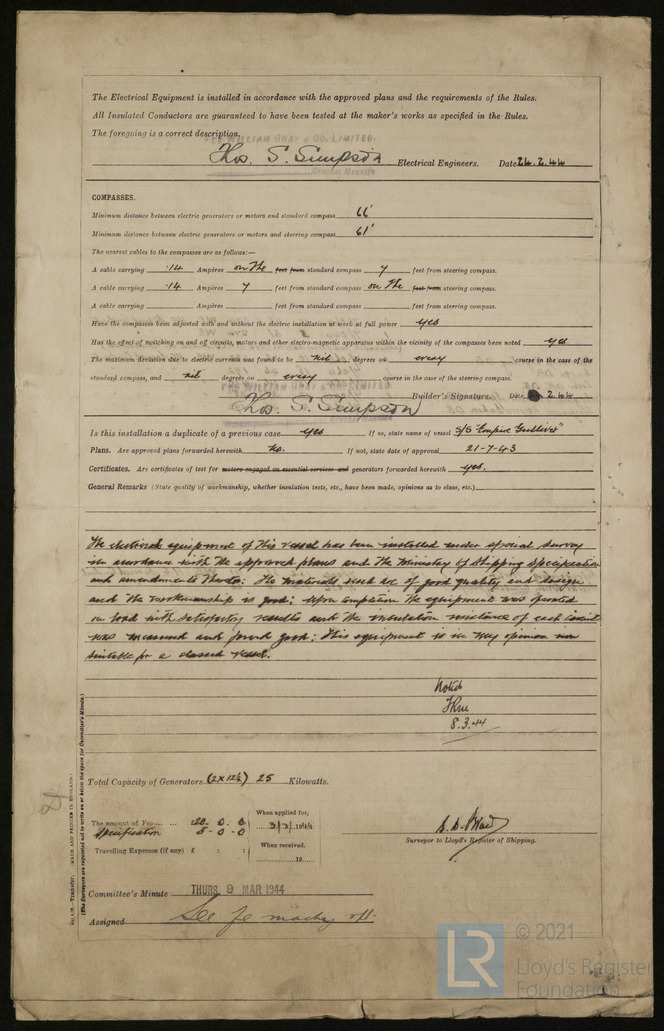 The Electrical Equipment is installed in accordance with the approved plans and the requirements of the Rules.
All Insulated Conductors are guaranteed to have been tested at the maker's works as specified in the Rules.
The foregoing is a correct description.
FOR WILLIAM GRAY & CO. LIMITED.
Thos. S. Simpson Electrical Engineers. Date 24.2.44
GENERAL MANAGER
COMPASSES.
Minimum distance between electric generators or motors and standard compass 66'
Minimum distance between electric generators or motors and steering compass 61'
The nearest cables to the compasses are as follows:—
A cable carrying .14 Ampères on the feet from standard compass 7 feet from steering compass.
A cable carrying .14 Ampères 7 feet from standard compass on the feet from steering compass.
A cable carrying Ampères feet from standard compass feet from steering compass.
Have the compasses been adjusted with and without the electric installation at work at full power yes
Has the effect of switching on and off circuits, motors and other electro-magnetic apparatus within the vicinity of the compasses been noted yes
The maximum deviation due to electric currents was found to be nil degrees on every course in the case of the
standard compass, and nil degrees on every course in the case of the steering compass.
FOR WILLIAM GRAY & CO. LIMITED
Thos. S. Simpson Builder's Signature. Date 2.44
Is this installation a duplicate of a previous case yes If so, state name of vessel S/S "Empire Gulliver"
Plans. Are approved plans forwarded herewith No. If not, state date of approval 21-7-43
Certificates. Are certificates of test for motors engaged on essential services and generators forwarded herewith yes.
General Remarks (State quality of workmanship, whether insulation tests, etc., have been made, opinions as to class, etc.)
The electrical equipment of this vessel has been installed under special survey
in accordance with the approved plans and the Ministry of Shipping specification
and amendments thereto: the materials used are of good quality and design
and the workmanship is good; upon completion the equipment was operated
on load with satisfactory results and the insulation resistance of each circuit
was measured and found good: this equipment is in my opinion now
suitable for a classed vessel.
Noted
8.3.44
Total Capacity of Generators (2x12½) 25 Kilowatts.
The amount of Fee ... ... 20 . 0 . 0
Specification 5 - 0 - 0
When applied for,
3/3/1944
Travelling Expenses (if any) £ : :
When received,
19
Surveyor to Lloyd's Register of Shipping.
Committee's Minute THURS. 9 MAR 1944
Assigned See
(MADE AND PRINTED IN ENGLAND.)
(The Surveyors are requested not to write on or below the space for Committee's Minute.)
LR
© 2021
Lloyd's Register
Foundation